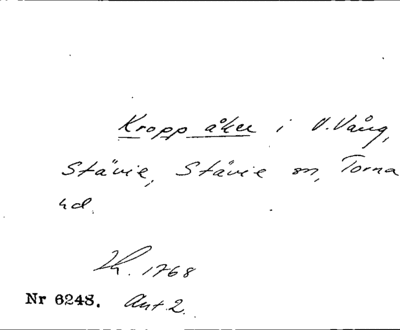 Kropp åker i V. Vång,
Stävie, Stävie sn, Torna
hd.
Lh. 1768
Nr 6248. Akt 2.